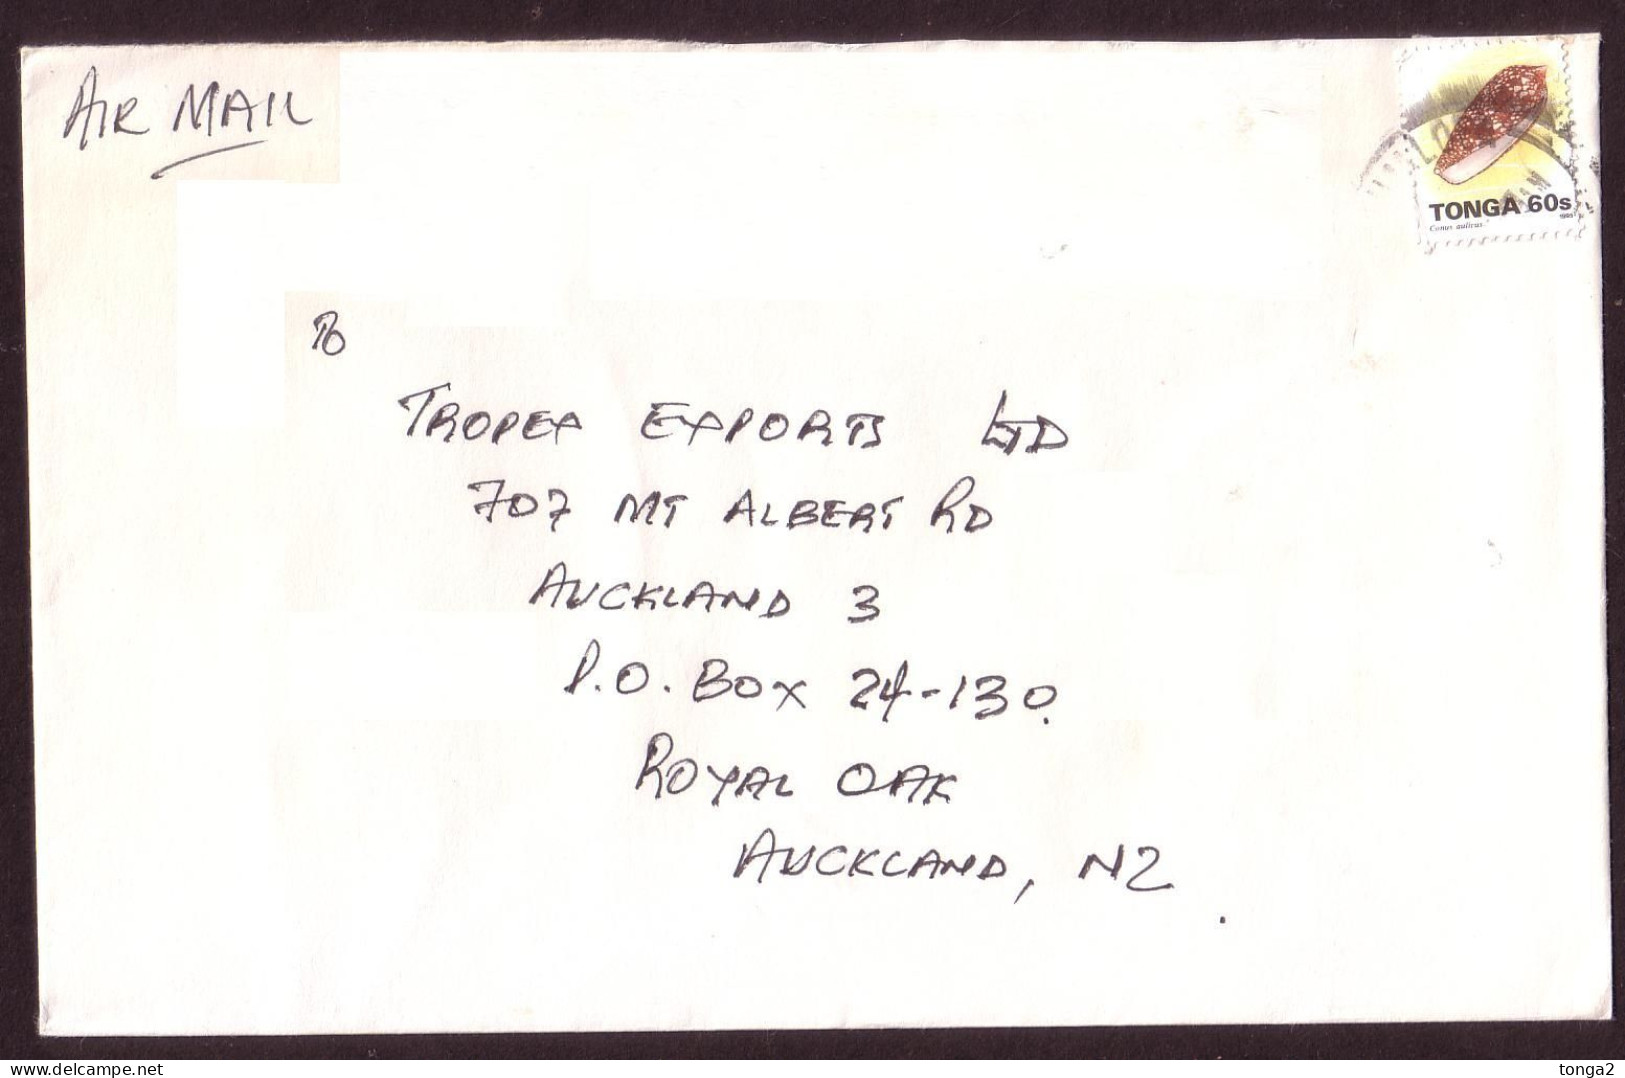 AIR MAIL
TONGA 60s
Conus aulicus
To
TROPEX EXPORTS LTD
707 MT ALBERT RD
AUCKLAND 3
P.O. BOX 24-130.
ROYAL OAK
AUCKLAND, NZ.
delcampe.net
tonga2